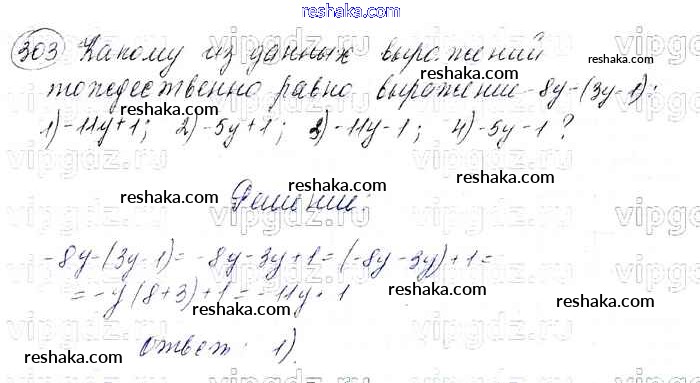 303 Какому из данных выражений
тождественно равно выражение -8y-(3y-1):
1) -11y+1; 2) -5y+1; 3) -11y-1; 4) -5y-1?
Решение:
-8y-(3y-1)= -8y-3y+1=(-8y-3y)+1=
=-y(8+3)+1=-11y+1
ответ: 1)
reshaka.com
reshaka.com
reshaka.com
reshaka.com
reshaka.com
reshaka.com
reshaka.com
reshaka.com
reshaka.com
reshaka.com
reshaka.com
reshaka.com
reshaka.com
vipgdz.ru
vipgdz.ru
vipgdz.ru
vipgdz.ru